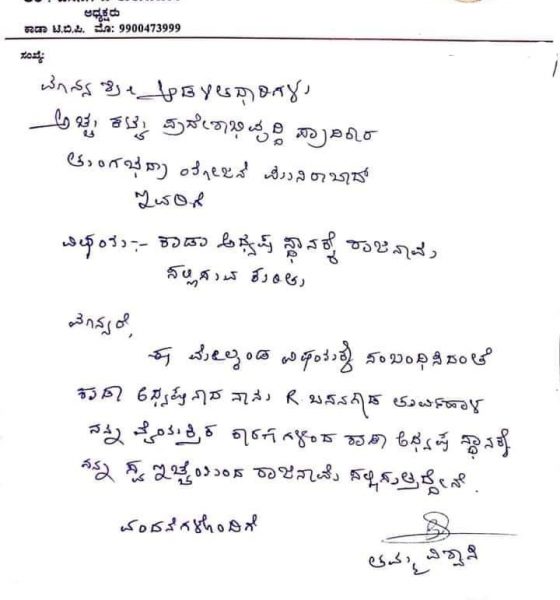 ಅಧ್ಯಕ್ಷರು
ಕಾಡಾ ಟಿ.ಬಿ.ಪಿ. ಮೊ: 9900473999
ಸಂಖ್ಯೆ:
ಮಾನ್ಯ ಶ್ರೀ ಆಡಳಿತಾಧಿಕಾರಿಗಳು
ಅಚ್ಚು ಕಟ್ಟು ಪ್ರದೇಶಾಭಿವೃದ್ಧಿ ಪ್ರಾಧಿಕಾರ
ತುಂಗಭದ್ರಾ ಯೋಜನೆ ಮುನಿರಾಬಾದ್
ಇವರಿಗೆ
ವಿಷಯ:- ಕಾಡಾ ಅಧ್ಯಕ್ಷ ಸ್ಥಾನಕ್ಕೆ ರಾಜಿನಾಮೆ
ಸಲ್ಲಿಸುವ ಕುರಿತು
ಮಾನ್ಯರೆ,
ಈ ಮೇಲ್ಕಂಡ ವಿಷಯಕ್ಕೆ ಸಂಬಂಧಿಸಿದಂತೆ
ಕಾಡಾ ಅಧ್ಯಕ್ಷನಾದ ನಾನು R ಬಸನಗೌಡ ತುರ್ವಿಹಾಳ
ನನ್ನ ವೈಯಕ್ತಿಕ ಕಾರಣಗಳಿಂದ ಕಾಡಾ ಅಧ್ಯಕ್ಷ ಸ್ಥಾನಕ್ಕೆ
ನನ್ನ ಸ್ವ ಇಚ್ಛೆಯಿಂದ ರಾಜಿನಾಮೆ ಸಲ್ಲಿಸುತ್ತಿದ್ದೇನೆ.
ವಂದನೆಗಳೊಂದಿಗೆ
ತಮ್ಮ ವಿಶ್ವಾಸಿ